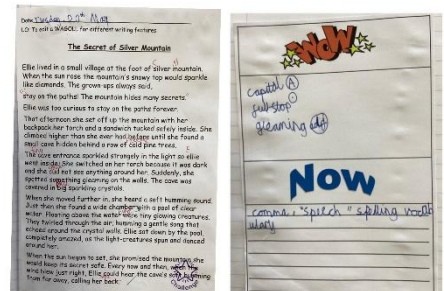 Date: Tuesday 27th May
LO: To edit a WAGOLL for different writing features
The Secret of Silver Mountain
Ellie lived in a small village at the foot of silver mountain.
When the sun rose the mountain's snowy top would sparkle
like diamonds. The grown-ups always said,
stay on the paths! The mountain hides many secrets.
Ellie was too curious to stay on the paths forever.
That afternoon she set off up the mountain with her
backpack her torch and a sandwich tucked safely inside. She
climbed higher than she ever had before until she found a
small cave hidden behind a row of cold pine trees.
The cave entrance sparkled strangely in the light so ellie
went inside. She switched on her torch because it was dark
and she not see anything around her. Suddenly, she
spotted something gleaming on the walls. The cave was
covered in big sparkling crystals.
When she moved further in, she heard a soft humming sound.
Just then she found a wide chamber with a pool of clear
water. Floating above the water were tiny glowing creatures.
They twirled through the air, humming a gentle song that
echoed around the crystal walls. Ellie sat down by the pool
completely amazed, as the light-creatures spun and danced
around her.
When the sun began to set, she promised the mountain she
would keep its secret safe. Every now and then, when the
wind blew just right, Ellie could hear the cave's soft humming
from far away, calling her back.
Challenge
WOW
capital A
full stop
gleaming
NOW
comma, "speech" spelling